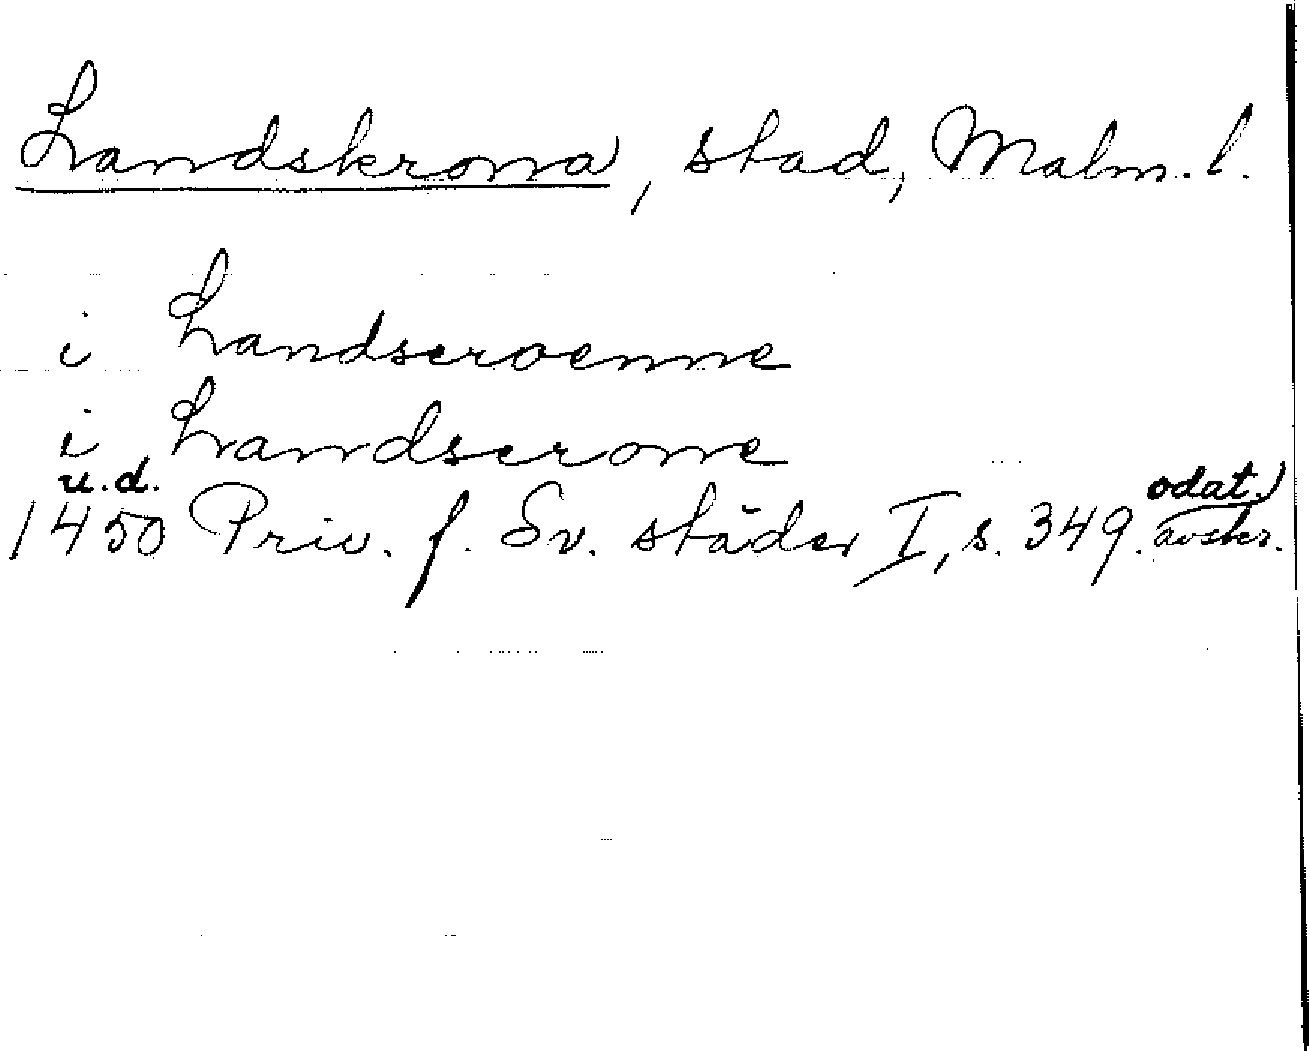 Landskrona, stad, Malm. l.
i Landscroenne
i Landscrone
u.d.
odat.)
1450 Priv. f. Sv. städer I, s. 349. avskr.